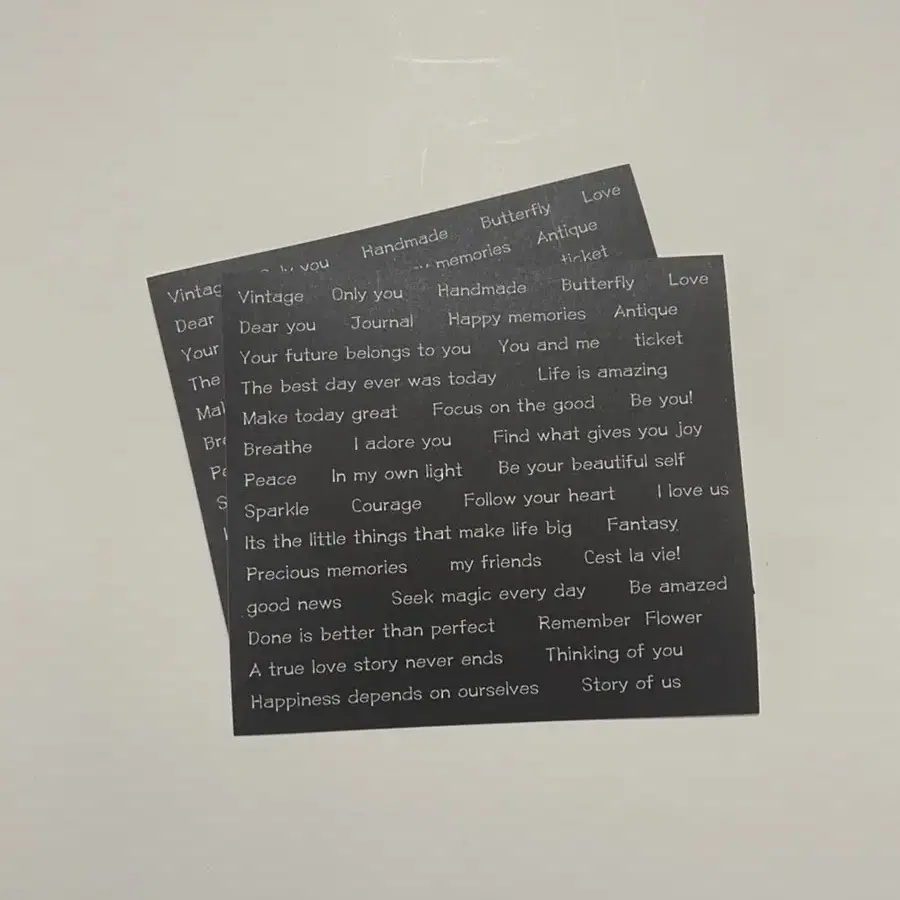 Handmade Butterfly Love
memories Antique
ticket
Dear
Your
The
Vintage Only you Handmade Butterfly Love
Dear you Journal Happy memories Antique
Your future belongs to you You and me ticket
The best day ever was today Life is amazing
Make today great Focus on the good Be you!
Breathe I adore you Find what gives you joy
Peace In my own light Be your beautiful self
Sparkle Courage Follow your heart I love us
Its the little things that make life big Fantasy
Precious memories my friends Cest la vie!
good news Seek magic every day Be amazed
Done is better than perfect Remember Flower
A true love story never ends Thinking of you
Happiness depends on ourselves Story of us